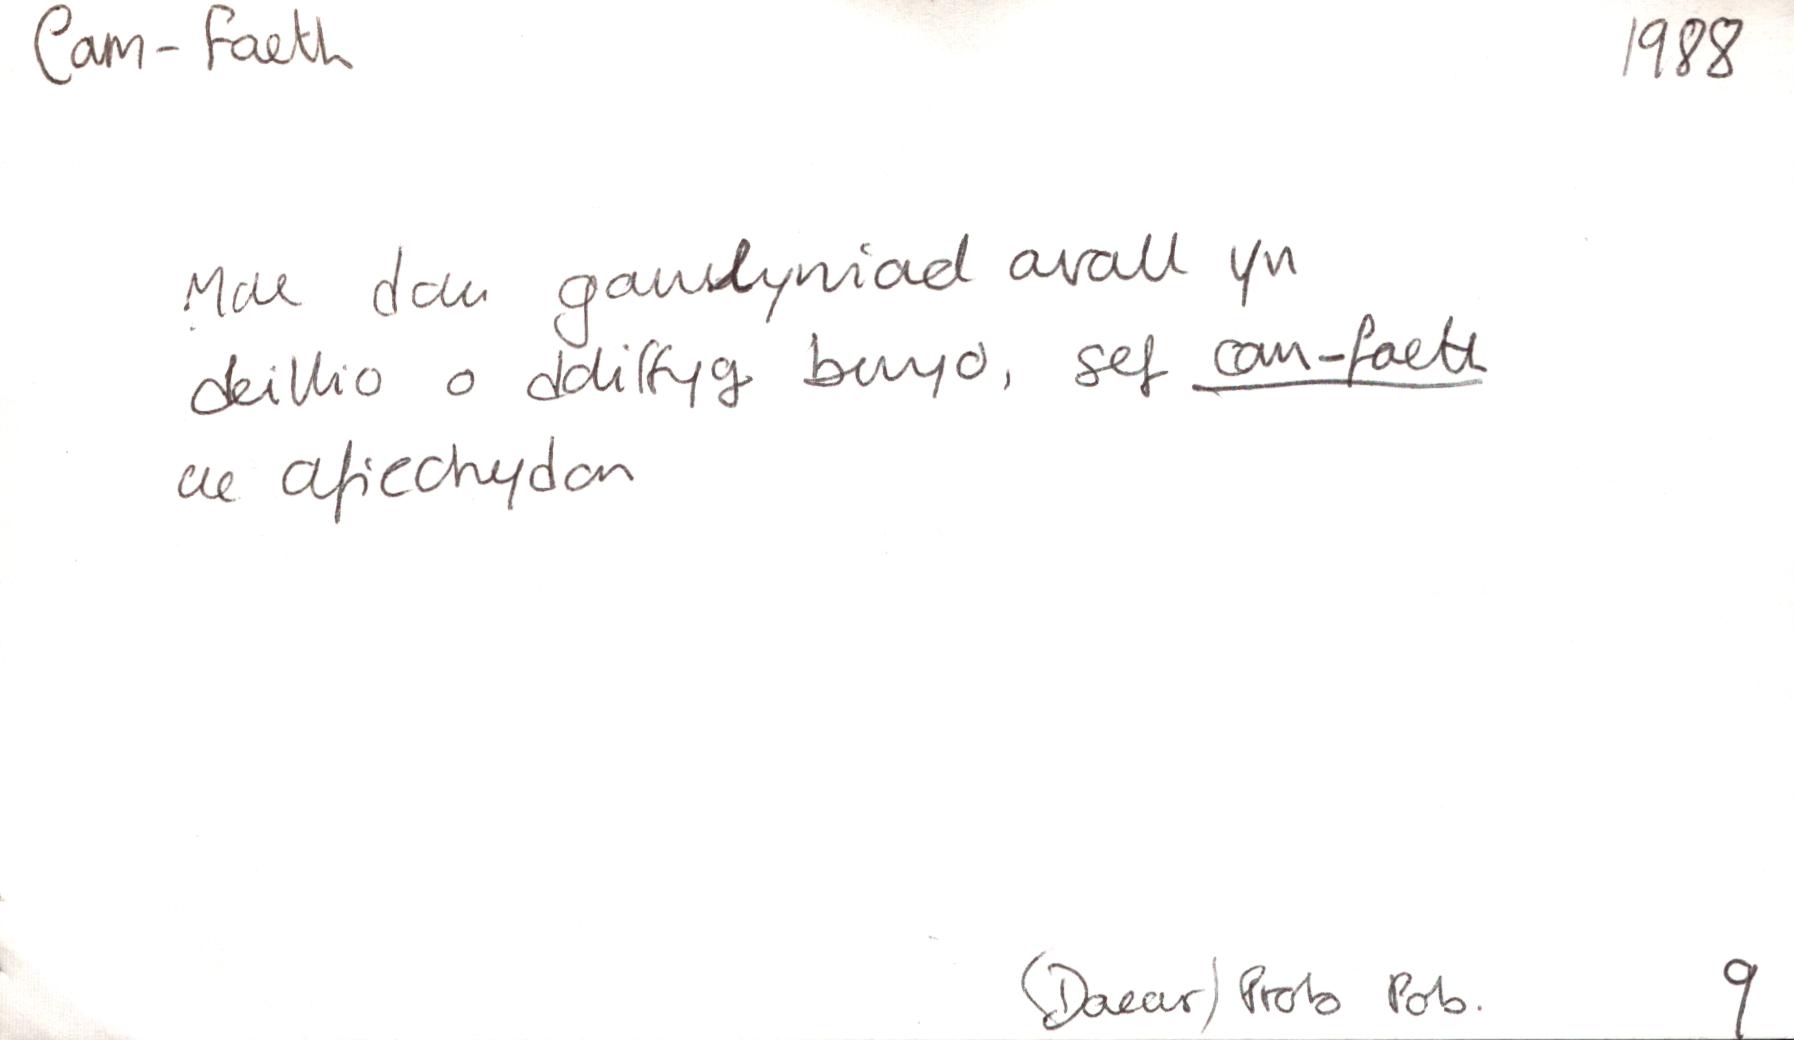 Cam-faeth 1988
Mae dau ganlyniad arall yn
deillio o ddiffyg bwyd, sef cam-faeth
ac afiechydon
(Daear) Prob Pob. 9